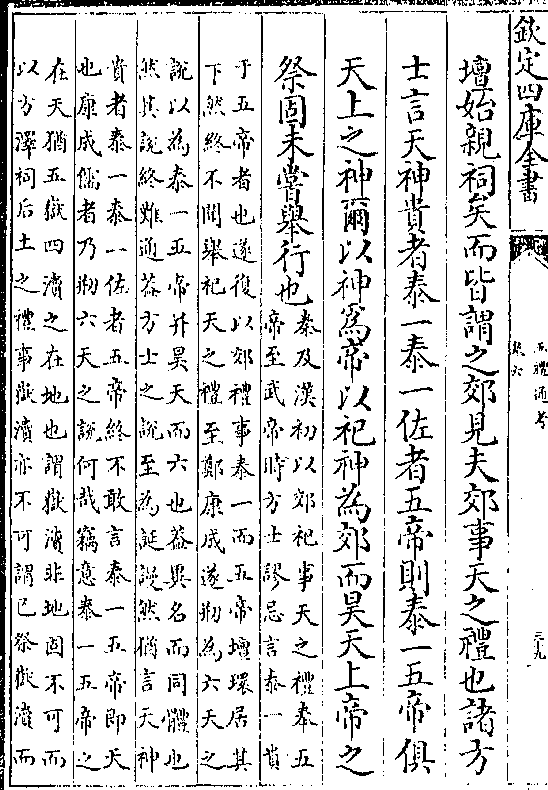 欽定四庫全書
五禮通考
卷六
三九
壇始親祠矣而皆謂之郊見夫郊事天之禮也諸方
士言天神貴者泰一泰一佐者五帝則泰一五帝俱
天上之神爾以神為帝以祀神為郊而昊天上帝之
祭固未嘗舉行也
秦及漢初以郊祀事天之禮奉五
帝至武帝時方士謬忌言泰一貴
于五帝者也遂復以郊禮事泰一而五帝壇環居其
下然終不聞舉祀天之禮至鄭康成遂剏為六天之
說以為泰一五帝并昊天而六也葢異名而同體也
然其說終難通葢方士之說至為誕謾然猶言天神
貴者泰一泰一佐者五帝終不敢言泰一五帝即天
也康成儒者乃剏六天之說何哉竊意泰一五帝之
在天猶五嶽四瀆之在地也謂嶽瀆非地固不可而
以方澤祠后土之禮事嶽瀆亦不可謂已祭嶽瀆而